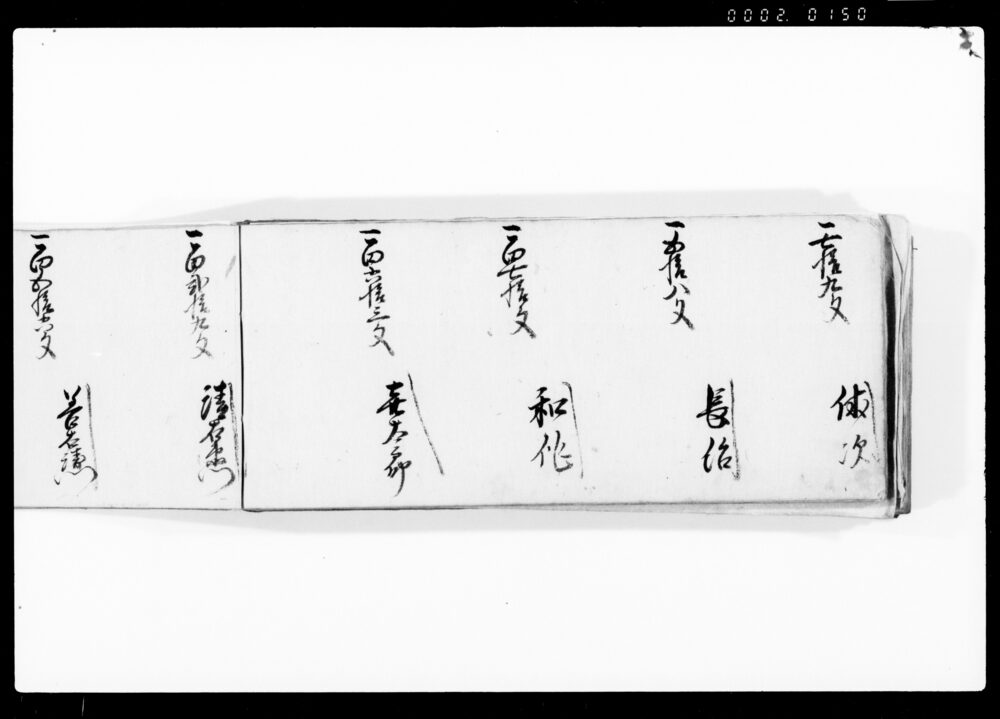 0002. 0150
一七拾九文
次
一五拾八文
長治
一百七拾文
和作
一百六拾三文
喜太郎
一百弐拾九文
清右衛門
一百四五拾六文
善右衛門